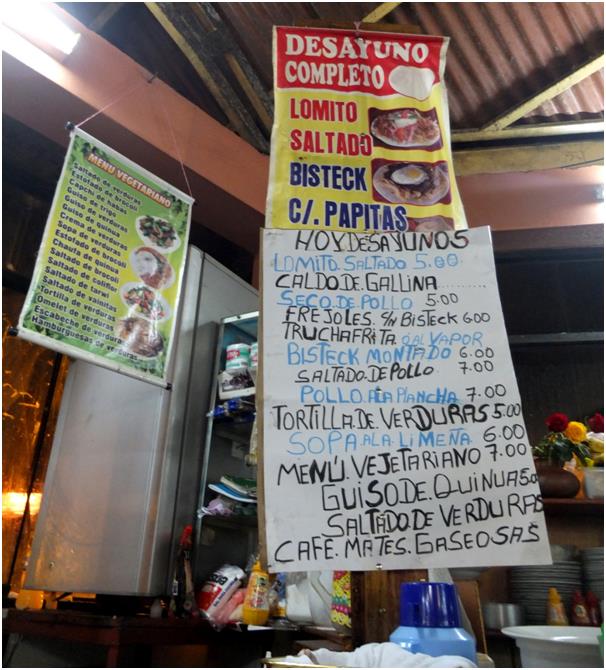 MENU VEGETARIANO
Saltado de verduras
Estofado de brocoli
Capchi de habas
Guiso de trigo
Guiso de verduras
Guiso de quinua
Crema de verduras
Sopa de verduras
Chofado de brocoli
Chaufa de quinua
Saltado de brocoli
Saltado de coliflor
Saltado de tarwi
Saltado de vainitas
Tortilla de verduras
Omelet de verduras
Escabeche de verduras
Hamburguesas de verduras
DESAYUNO
COMPLETO
LOMITO
SALTADO
BISTECK
C/. PAPITAS
HOY DESAYUNOS
LOMITO SALTADO 5.00
CALDO.DE.GALLINA..........
SECO.DE.POLLO 5.00
FREJOLES. S/N BISTECK 6.00
TRUCHAFRITA O AL VAPOR
BISTECK MONTADO 6.00
SALTADO.DE.POLLO. 7.00
POLLO.ALA PLANCHA. 7.00
TORTILLA.DE.VERDURAS 5.00
SOPA.ALA.LIMEÑA 6.00
MENÚ.VEJETARIANO 7.00
GUISO.DE.QUINUA 5.00
SALTADO.DE VERDURAS
CAFÉ. MATES. GASEOSAS